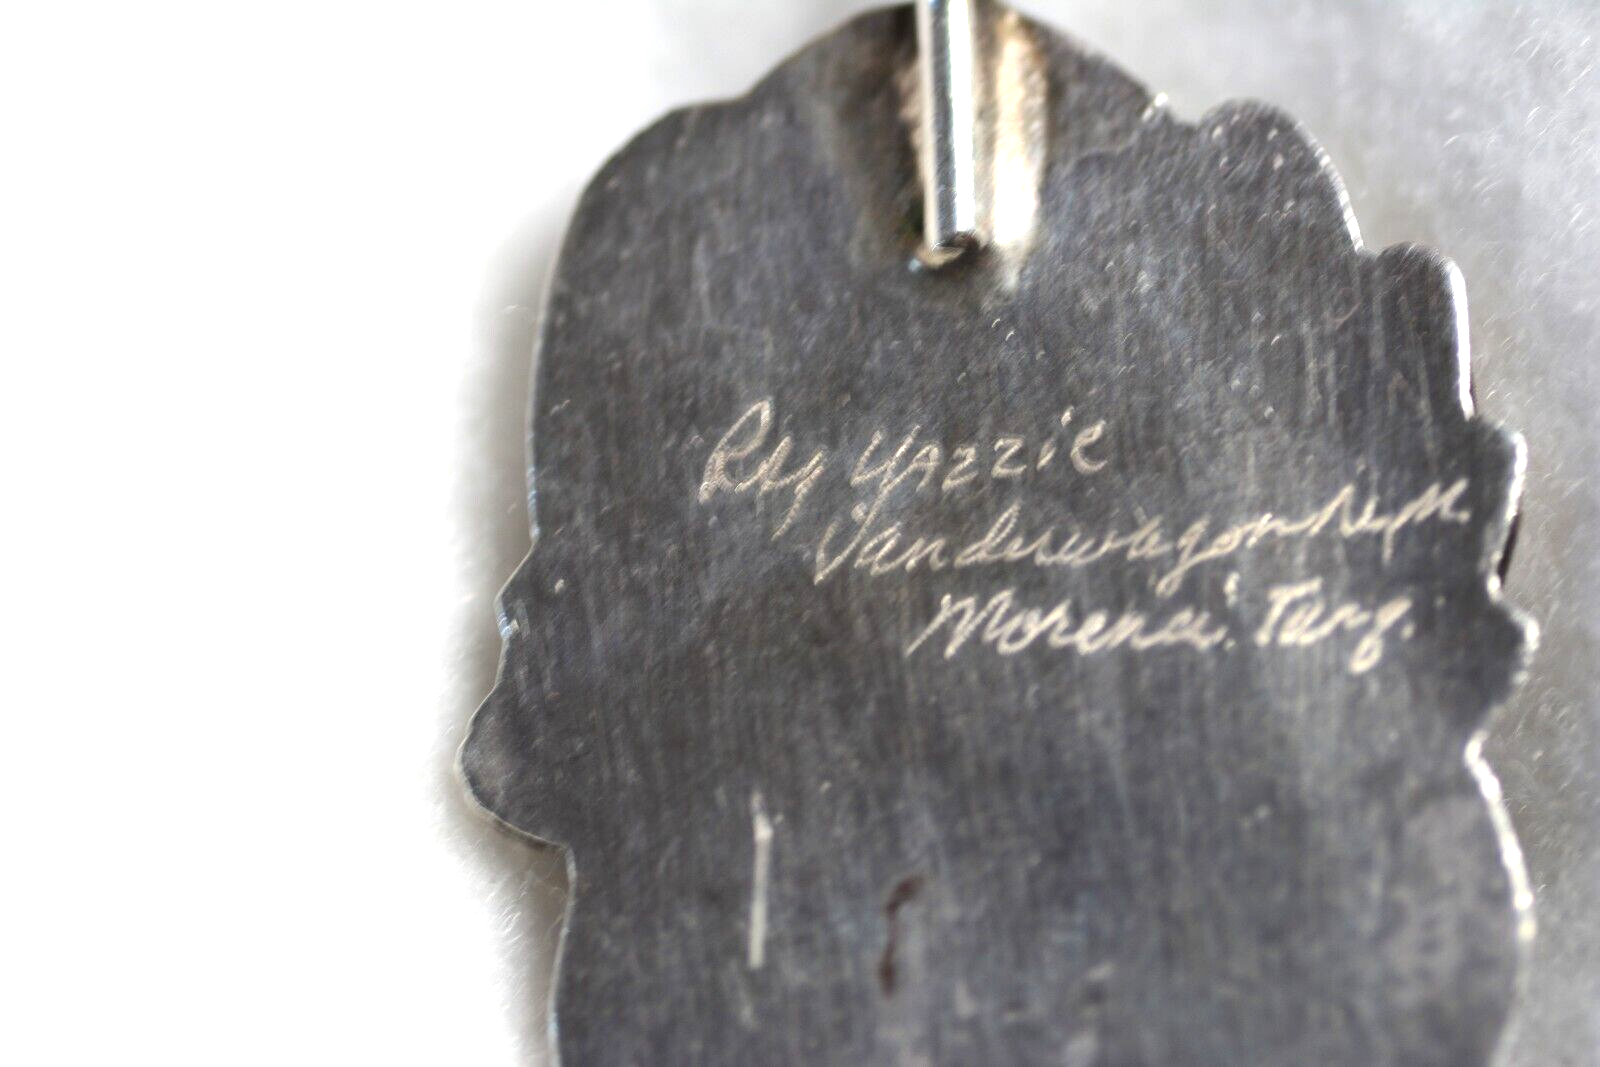 Yazzie
Vanderwagon N.M.
Morenci. Turq.